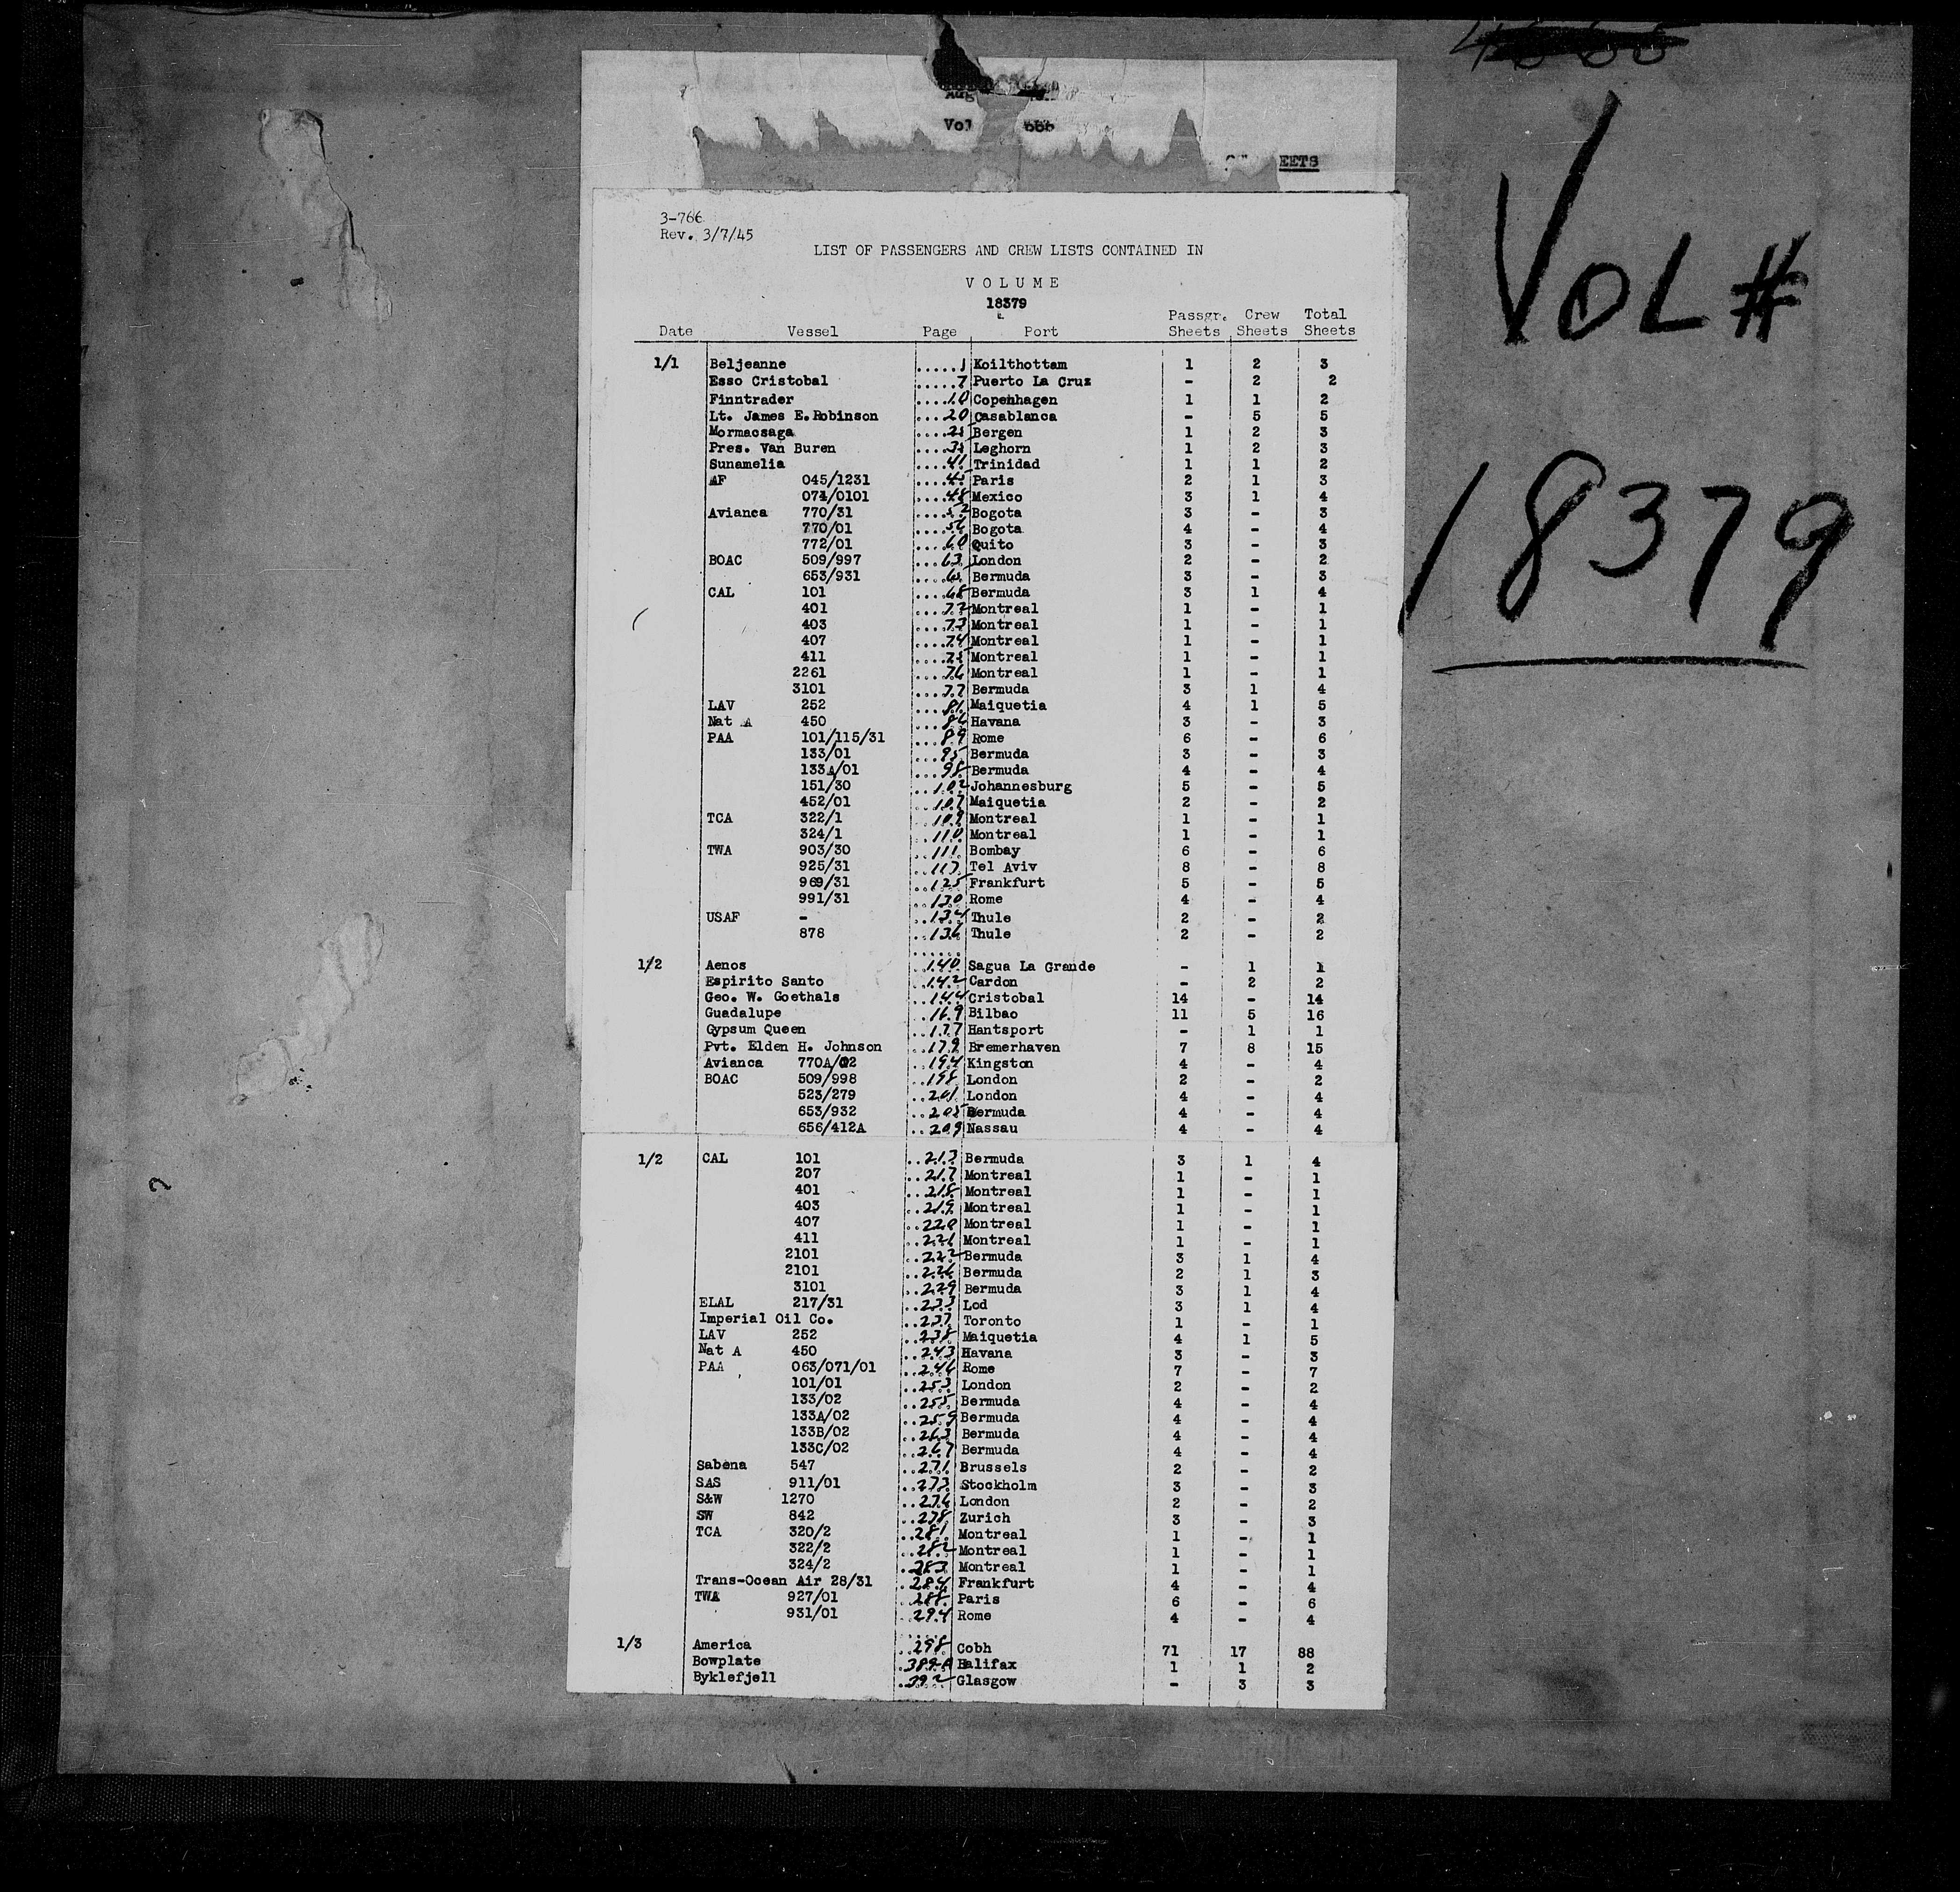 Vol 666
EETS
VOL #
18379
3-766
Rev. 3/7/45
LIST OF PASSENGERS AND CREW LISTS CONTAINED IN
VOLUME
18379
Date Vessel Page Port Passgr. Sheets Crew Sheets Total Sheets
1/1 Beljeanne .....1 Koilthottam 1 2 3
Esso Cristobal .....7 Puerto La Cruz - 2 2
Finntrader ....10 Copenhagen 1 1 2
Lt. James E.Robinson ....20 Casablanca - 5 5
Mormacsaga ....25 Bergen 1 2 3
Pres. Van Buren ....35 Leghorn 1 2 3
Sunamelia ....41 Trinidad 1 1 2
AF 045/1231 ....45 Paris 2 1 3
074/0101 ....48 Mexico 3 1 4
Avianca 770/31 ....52 Bogota 3 - 3
770/01 ....56 Bogota 4 - 4
772/01 ....60 Quito 3 - 3
BOAC 509/997 ....63 London 2 - 2
653/931 ....65 Bermuda 3 - 3
CAL 101 ....68 Bermuda 3 1 4
401 ....72 Montreal 1 - 1
403 ....73 Montreal 1 - 1
407 ....74 Montreal 1 - 1
411 ....75 Montreal 1 - 1
2261 ....76 Montreal 1 - 1
3101 ....77 Bermuda 3 1 4
LAV 252 ....81 Maiquetia 4 1 5
Nat A 450 ....86 Havana 3 - 3
PAA 101/115/31 ....89 Rome 6 - 6
133/01 ....95 Bermuda 3 - 3
133A/01 ....98 Bermuda 4 - 4
151/30 ...102 Johannesburg 5 - 5
452/01 ...107 Maiquetia 2 - 2
TCA 322/1 ...109 Montreal 1 - 1
324/1 ...110 Montreal 1 - 1
TWA 903/30 ...111 Bombay 6 - 6
925/31 ...117 Tel Aviv 8 - 8
969/31 ...125 Frankfurt 5 - 5
991/31 ...130 Rome 4 - 4
USAF - ...134 Thule 2 - 2
878 ...136 Thule 2 - 2
1/2 Aenos ...140 Sagua La Grande - 1 1
Espirito Santo ...142 Cardon - 2 2
Geo. W. Goethals ...144 Cristobal 14 - 14
Guadalupe ...169 Bilbao 11 5 16
Gypsum Queen ...177 Hantsport - 1 1
Pvt. Elden H. Johnson ...179 Bremerhaven 7 8 15
Avianca 770A/02 ...194 Kingston 4 - 4
BOAC 509/998 ...198 London 2 - 2
523/279 ...201 London 4 - 4
653/932 ...205 Bermuda 4 - 4
656/412A ...209 Nassau 4 - 4
1/2 CAL 101 ..213 Bermuda 3 1 4
207 ..217 Montreal 1 - 1
401 ..218 Montreal 1 - 1
403 ..219 Montreal 1 - 1
407 ..220 Montreal 1 - 1
411 ..221 Montreal 1 - 1
2101 ..222 Bermuda 3 1 4
2101 ..226 Bermuda 2 1 3
3101 ..229 Bermuda 3 1 4
ELAL 217/31 ..233 Lod 3 1 4
Imperial Oil Co. ..237 Toronto 1 - 1
LAV 252 ..238 Maiquetia 4 1 5
Nat A 450 ..243 Havana 3 - 3
PAA 063/071/01 ..246 Rome 7 - 7
101/01 ..253 London 2 - 2
133/02 ..255 Bermuda 4 - 4
133A/02 ..259 Bermuda 4 - 4
133B/02 ..263 Bermuda 4 - 4
133C/02 ..267 Bermuda 4 - 4
Sabena 547 ..271 Brussels 2 - 2
SAS 911/01 ..273 Stockholm 3 - 3
S&W 1270 ..276 London 2 - 2
SW 842 ..278 Zurich 3 - 3
TCA 320/2 ..281 Montreal 1 - 1
322/2 ..282 Montreal 1 - 1
324/2 ..283 Montreal 1 - 1
Trans-Ocean Air 28/31 ..284 Frankfurt 4 - 4
TWA 927/01 ..288 Paris 6 - 6
931/01 ..294 Rome 4 - 4
1/3 America ..298 Cobh 71 17 88
Bowplate .389-A Halifax 1 1 2
Byklefjell .392 Glasgow - 3 3